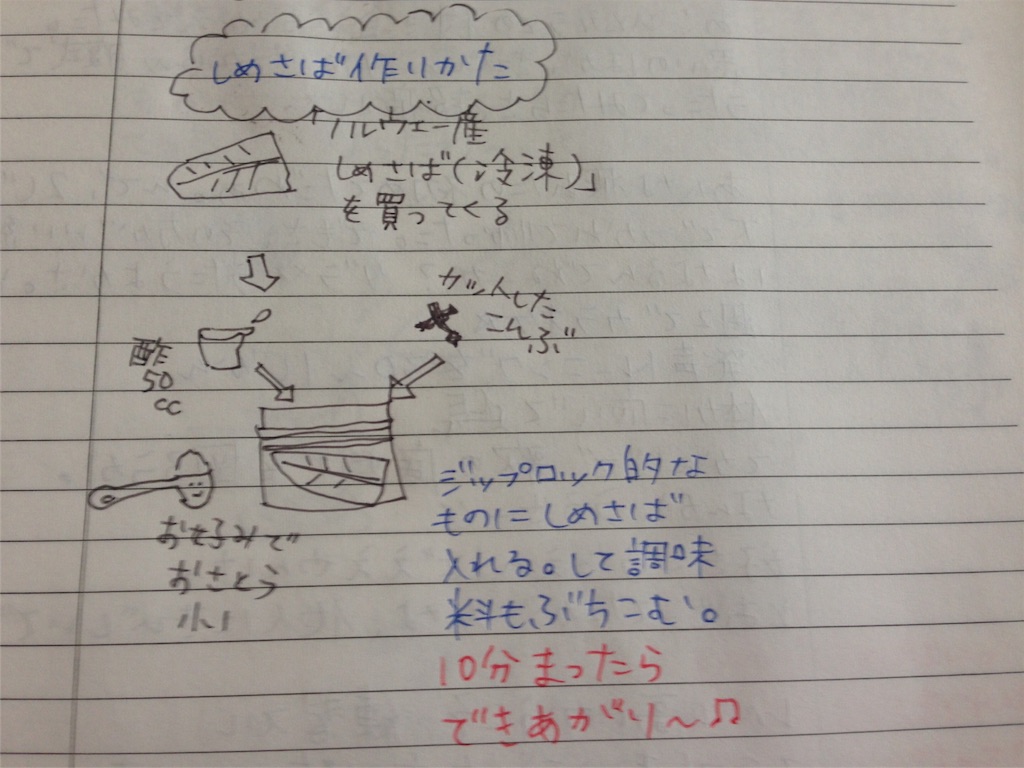 しめさば作りかた
「ノルウェー産
しめさば(冷凍)」
を買ってくる
カットした
こんぶ
酢
50
cc
おこのみで
おさとう
小1
ジップロック的な
ものにしめさば
入れる。して調味
料もぶちこむ。
10分まったら
できあがり〜♫